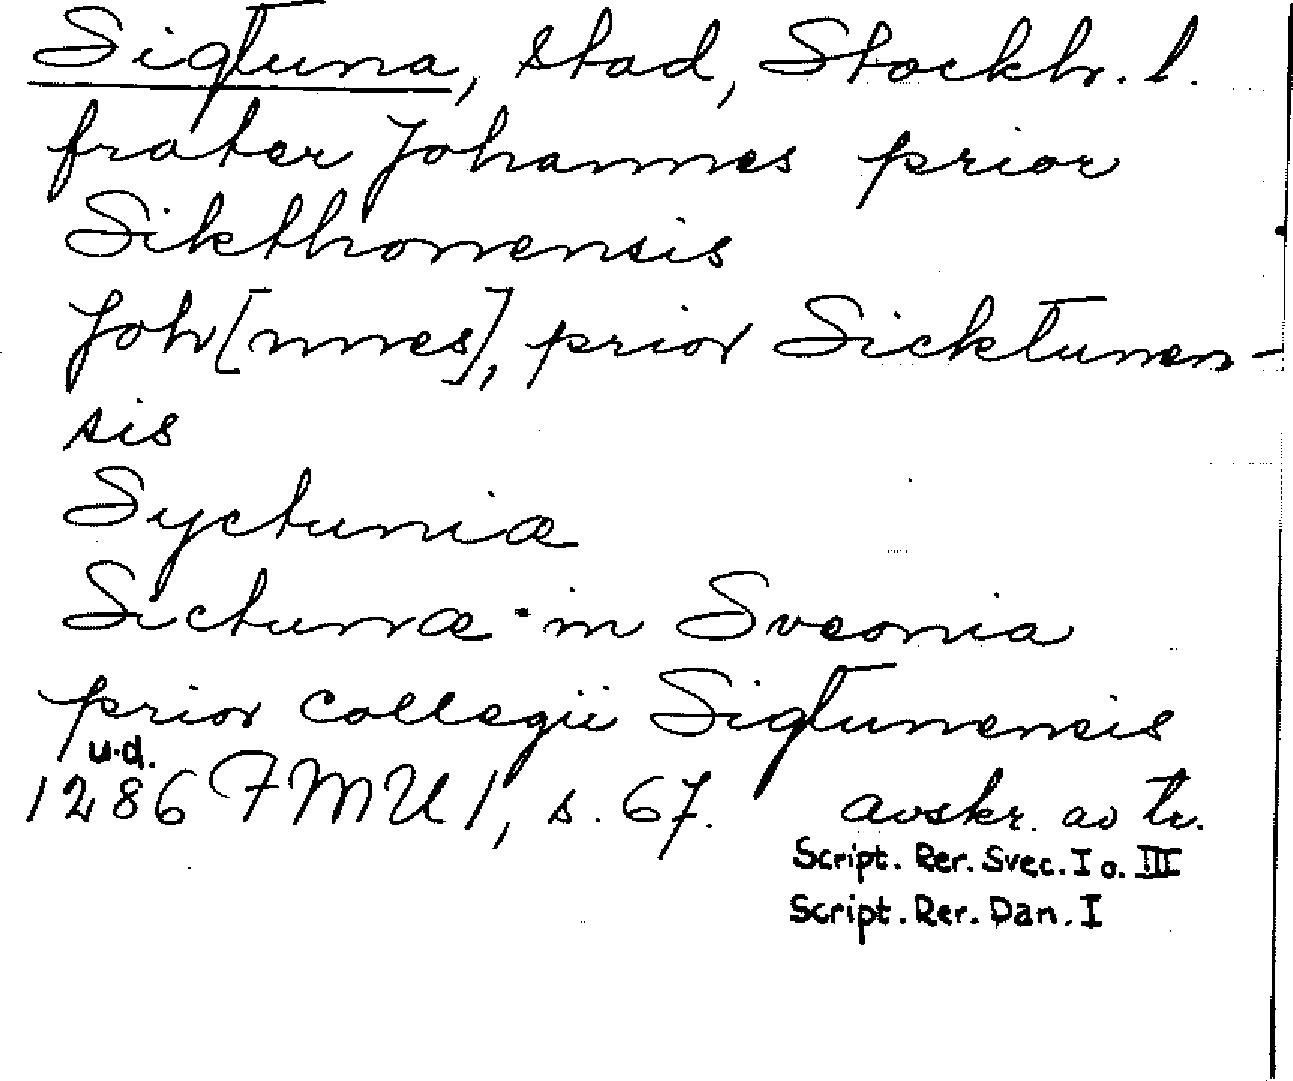 Sigtuna, stad, Stockh. l.
frater Johannes prior
Sikthonensis
Joh[nnes], prior Sicktunen-
sis
Syctuniæ
Sictunæ in Sveonia
prior collegii Sigtunensis
u.d.
1286 FMU 1, s. 67. avskr. av tr.
Script. Rer. Svec. I o. III
Script. Rer. Dan. I